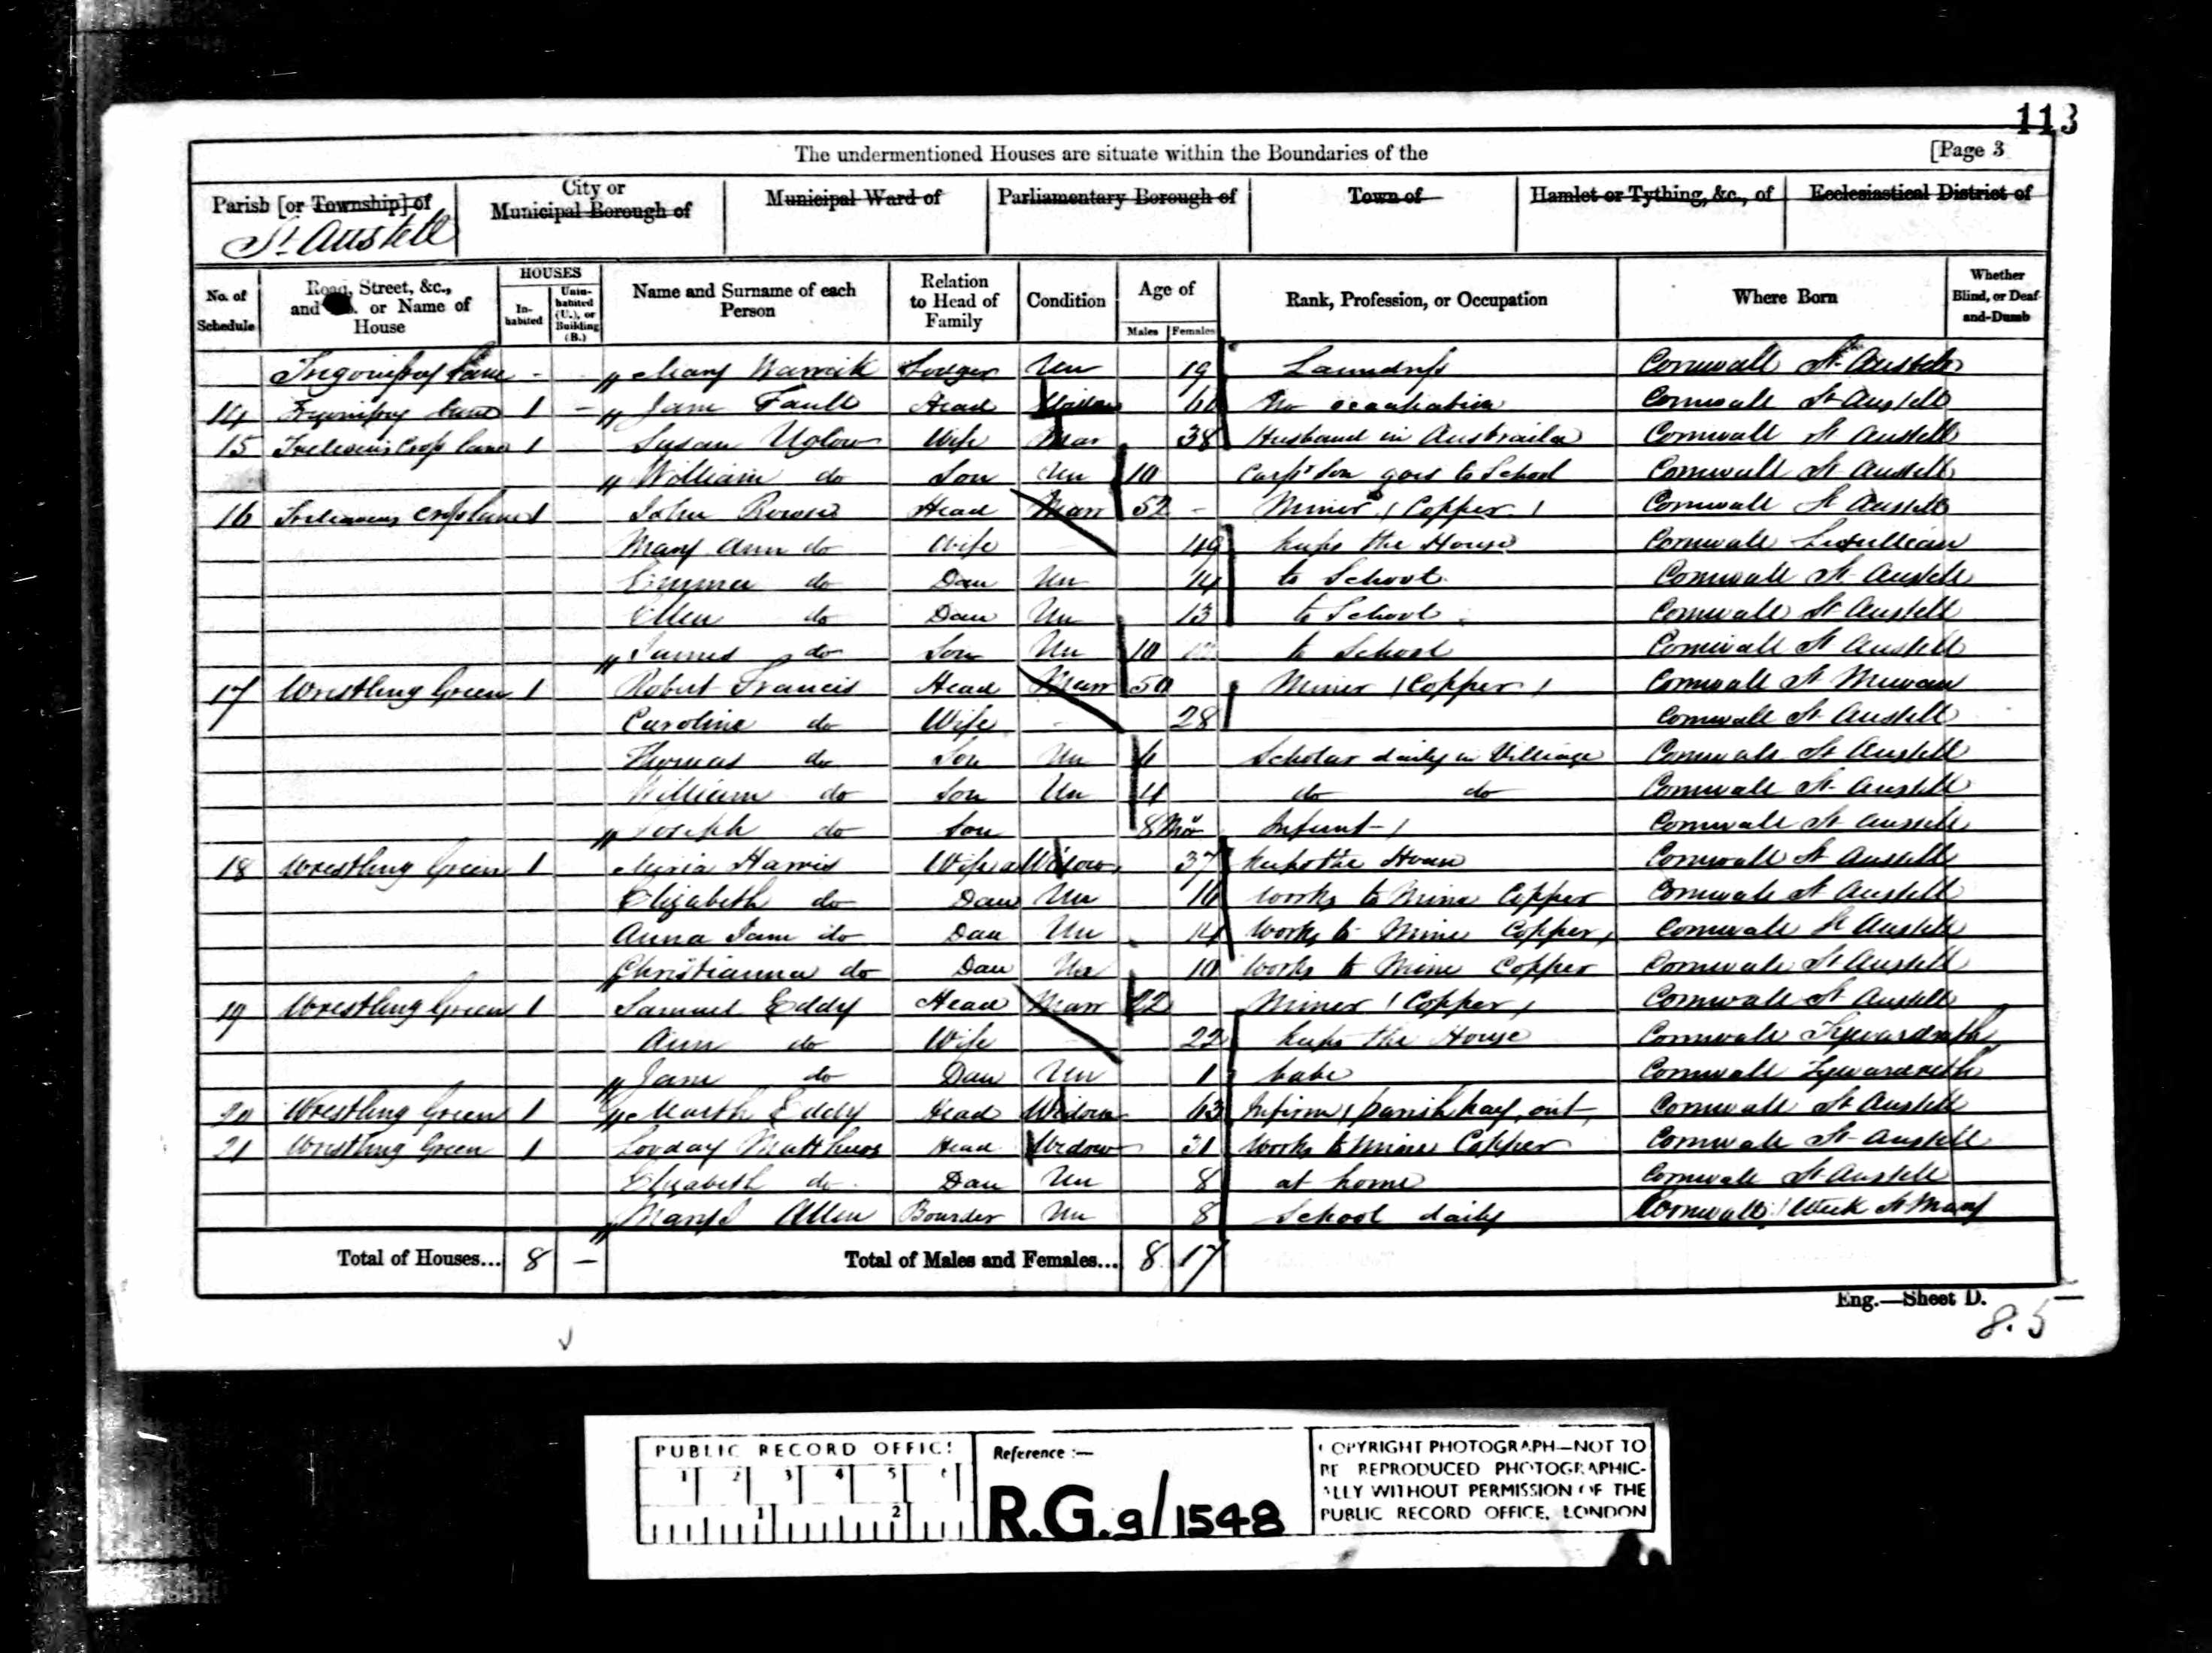 113
The undermentioned Houses are situate within the Boundaries of the [Page 3
Parish [or Township] of City or Municipal Borough of Municipal Ward of Parliamentary Borough of Town of Hamlet or Tything, &c., of Ecclesiastical District of
St Austell
No. of Schedule Road, Street, &c., and or Name of House HOUSES Inhabited Uninhabited (U.), or Building (B.) Name and Surname of each Person Relation to Head of Family Condition Age of Males Females Rank, Profession, or Occupation Where Born Whether Blind, or Deaf-and-Dumb
Lane - " Mary Warrick Lodger Un 19 Laundress Cornwall St Austell
14 Lane 1 - " Jane Faull Head Widow No Cornwall St Austell
15 Lane 1 Susan Uglow Wife Mar 38 Husband in Austrailia Cornwall St Austell
" William do Son Un 10 Son goes to School Cornwall St Austell
16 Lane 1 John Rowse Head Marr 52 - Miner (Copper) Cornwall St Austell
Mary Ann do Wife 49 keeps the House Cornwall
Emma do Dau Un 14 to School Cornwall St Austell
Ellen do Dau Un 13 to School Cornwall St Austell
" James do Son Un 10 to School Cornwall St Austell
17 Wrestling Green 1 Robert Francis Head Marr 50 Miner (Copper) Cornwall St Mewan
Caroline do Wife - 28 Cornwall St Austell
Thomas do Son Un 6 Scholar daily in Cornwall St Austell
William do Son Un 4 do do Cornwall St Austell
" Joseph do Son 8 Mos Infant Cornwall St Austell
18 Wrestling Green 1 Harris Wife a Widow 37 keeps the House Cornwall St Austell
Elizabeth do Dau Un 16 works to Mine Copper Cornwall St Austell
Anna Jane do Dau Un 14 Works to Mine Copper Cornwall St Austell
Christianna do Dau Un 10 works to Mine Copper Cornwall St Austell
19 Wrestling Green 1 Samuel Eddy Head Marr 22 Miner (Copper) Cornwall St Austell
Ann do Wife - 22 keeps the House Cornwall Tywardreath
" Jane do Dau Un 1 babe Cornwall Tywardreath
20 Wrestling Green 1 " Eddy Head Widow 63 Infirm, parish pay, out Cornwall St Austell
21 Wrestling Green 1 Loveday Matthews Head Widow 31 Works to Mine Copper Cornwall St Austell
Elizabeth do Dau Un 8 at home Cornwall St Austell
" Mary J Allen Boarder Un 8 School daily Cornwall Week St Mary
Total of Houses... 8 — Total of Males and Females... 8 17
Eng.—Sheet D.
8.5
PUBLIC RECORD OFFICE
1 2 3 4 5 6
1 2
Reference :—
R.G. 9/1548
COPYRIGHT PHOTOGRAPH—NOT TO
BE REPRODUCED PHOTOGRAPHIC-
ALLY WITHOUT PERMISSION OF THE
PUBLIC RECORD OFFICE, LONDON